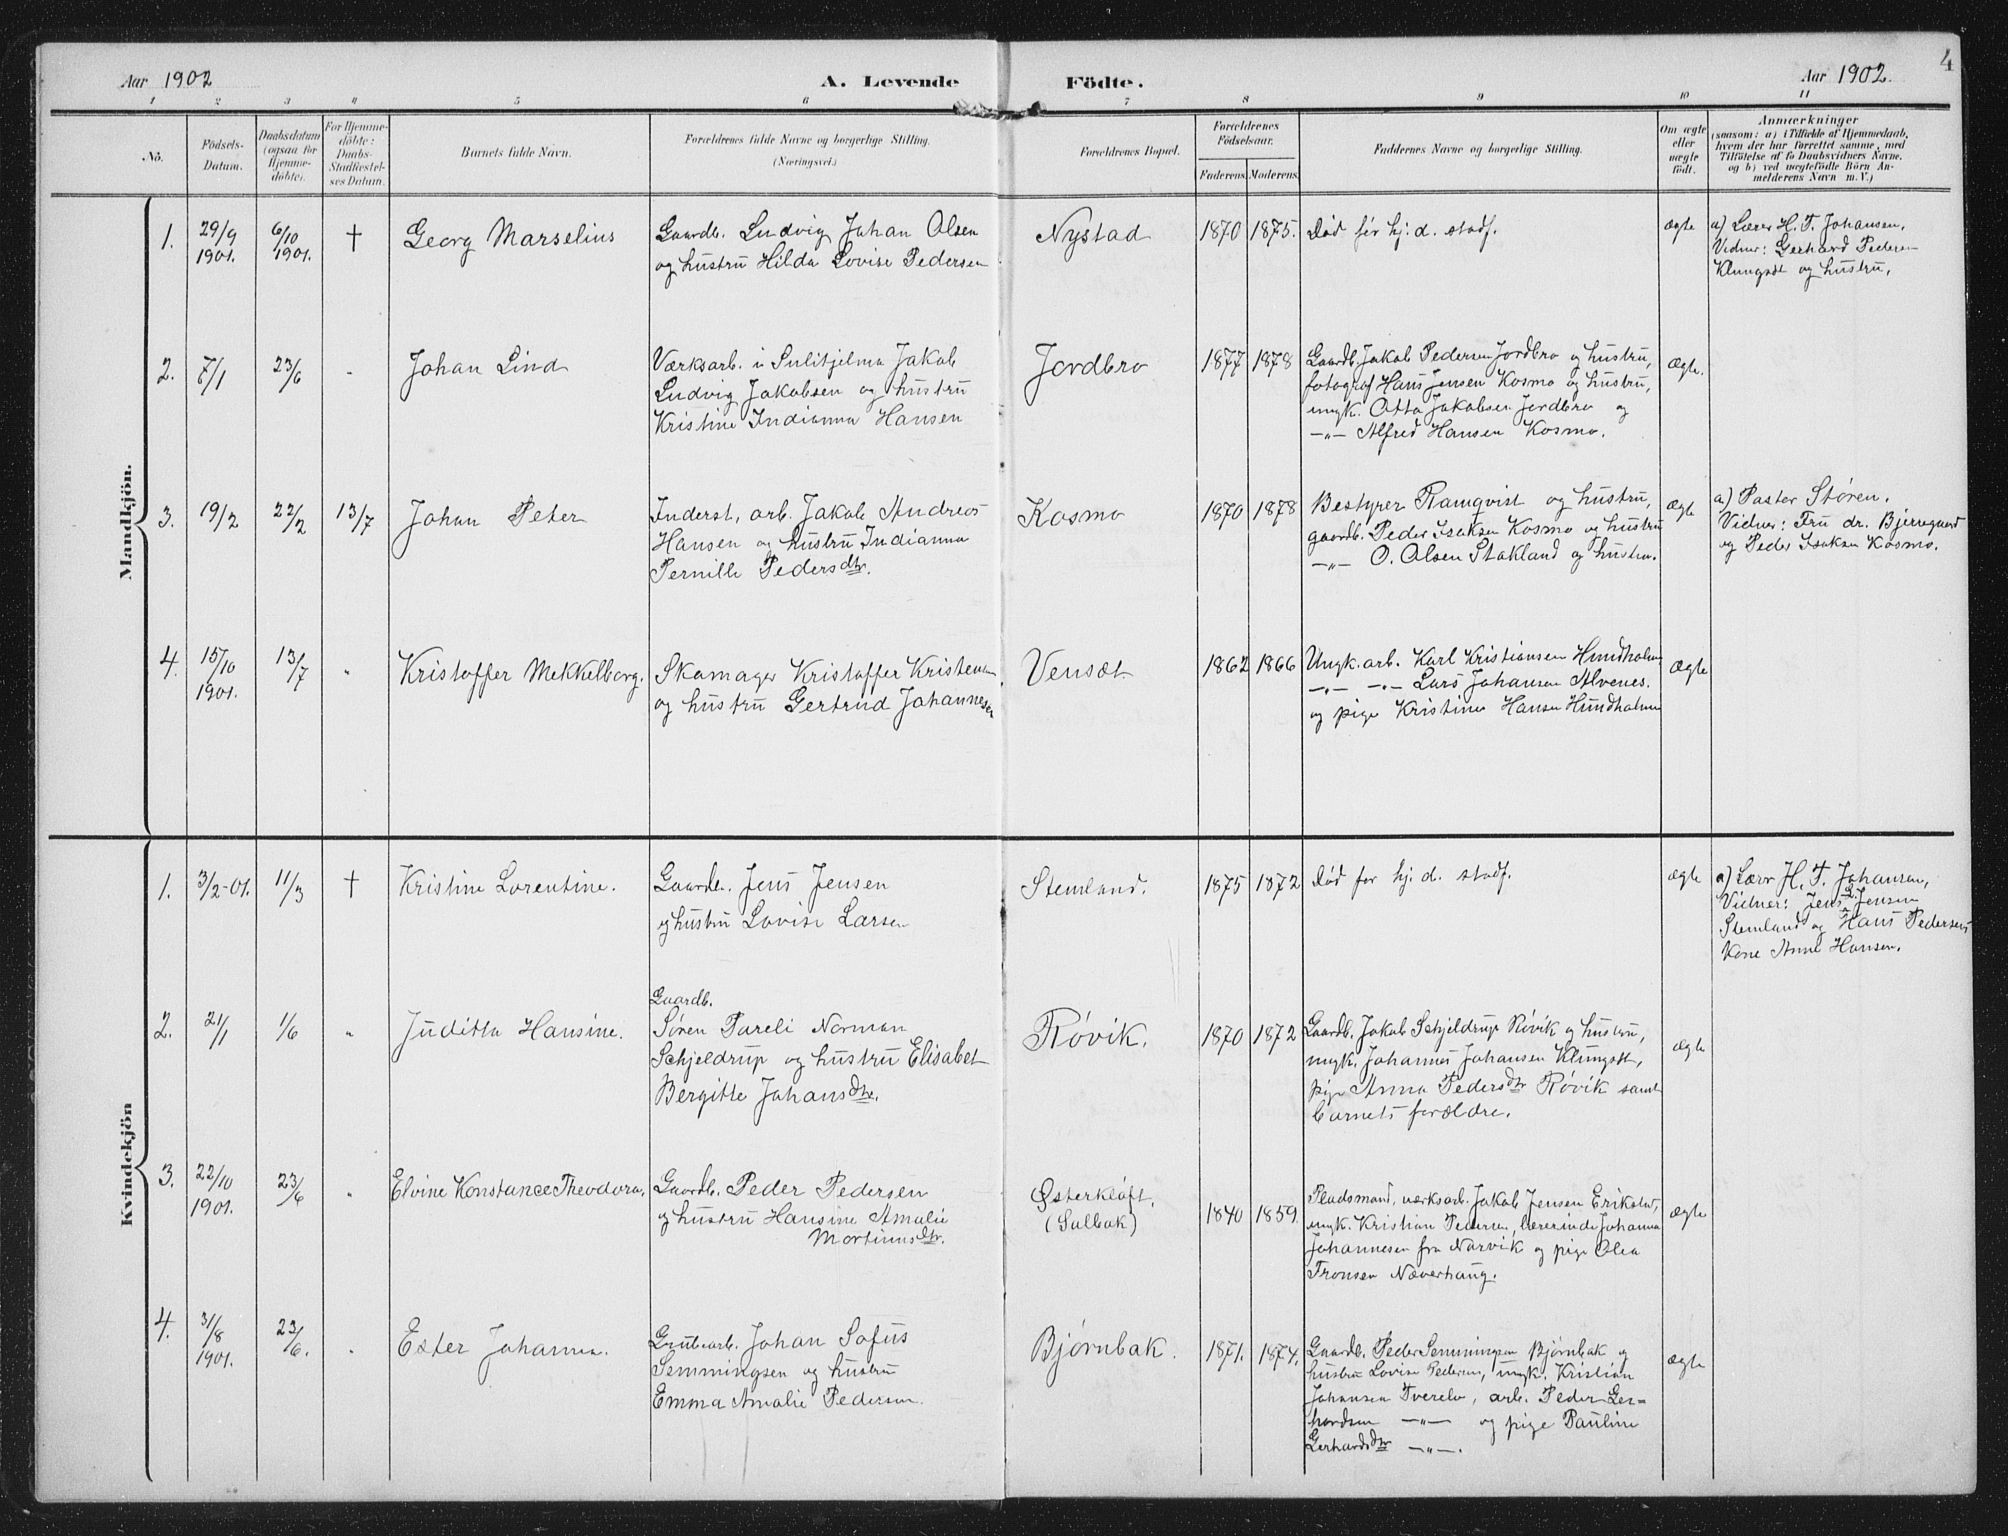 4
Aar 1902
A. Levende
Födte.
Aar 1902.
1 2 3 4 5 6 7 8 9 10 11
No.
Födsels-
Datum.
Daabsdatum
(ogsaa for
Hjemme-
döbte).
For Hjemme-
döbte:
Daabs-
Stadfæstel-
ses Datum.
Barnets fulde Navn.
Forældrenes fulde Navne og borgerlige Stilling.
(Næringsvei.)
Forældrenes Bopæl.
Forældrenes
Födselsaar.
Faderens.
Moderens.
Faddernes Navne og borgerlige Stilling.
Om ægte
eller
uægte
födt.
Anmærkninger
(saasom: a) i Tilfælde af Hjemmedaab,
hvem der har forrettet samme, med
Tilföielse af to Daabsvidners Navne,
og b) ved uægtefödte Börn An-
melderens Navn m. V.)
Mandkjön.
1.
29/9
1901.
6/10
1901.
†
Georg Marselius
Gaardb. Ludvig Johan Olsen
og hustru Hilda Lovise Pedersen
Nystad
1870
1875.
Død før hj. d. stadf.
ægte
a) Lærer H. T. Johansen.
Vidner: Gerhard Pedersen
Klungset og hustru.
2.
7/1
23/6
"
Johan Lind
Værksarb. i Sulitjelma Jakob
Ludvig Jakobsen og hustru
Kristine Indianna Hansen
Jordbro
1877
1878
Gaardb. Jakob Pedersen Jordbro og hustru,
fotograf Hans Jensen Kosmo og hustru,
ungk. Otto Jakobsen Jordbro og
—"— Alfred Hansen Kosmo.
ægte.
3.
19/2
22/2
13/7
Johan Peter
Inderst, arb. Jakob Andreas
Hansen og hustru Indianna
Pernille Pedersdtr.
Kosmo
1870
1878
Bestyrer Ramqvist og hustru,
gaardb. Peder Isaksen Kosmo og hustru
—"— O. Olsen Stokland og hustru.
ægte
a) Pastor Støren.
Vidner: Fru dr. Bjerregaard
og Peder Isaksen Kosmo.
4.
15/10
1901.
13/7
"
Kristoffer Mekkelborg.
Skomager Kristoffer Kristensen
og hustru Gertrud Johannesen
Vensæt
1862
1866
Ungk. arb. Karl Kristiansen Hundholmen
—"— —"— Lars Johansen Alvenes.
og pige Kristine Hansen Hundholmen
ægte
Kvindekjön
1.
3/2-01.
11/3
†
Kristine Lorentine.
Gaardb. Jens Jensen
og hustru Lovise Larsen
Stemland.
1875
1872
Død før hj. d. stadf.
ægte
a) Lærer H. T. Johansen,
Vidner: Jens L. Jensen
Stemland og Hans Pedersens
Kone Anne Hansen.
2.
21/1
1/6
"
Juditta Hansine.
Gaardb.
Søren Pareli Norman
Schjeldrup og hustru Elisabet
Bergitte Johansdtr.
Røvik.
1870
1872
Gaardb. Jakob Schjeldrup Røvik og hustru,
ungk. Johannes Johansen Klungset,
pige Anna Pedersdtr Røvik samt
barnets forældre.
ægte
3.
22/10
1901.
23/6
"
Elvine Konstance Theodora.
Gaardb. Peder Pedersen
og hustru Hansine Amalie
Mortinusdtr.
Østerkløft.
(Salbak)
1840
1859
Pladsmand, værksarb. Jakob Jensen Erikslid,
ungk. Kristian Pedersen, lærerinde Johanna
Johannesen fra Narvik og pige Olea
Tronsen Næverhaug.
ægte
4.
31/8
1901.
23/6.
"
Ester Johanna.
Grubearb. Johan Sofus
Semmingsen og hustru
Emma Amalie Pedersen.
Bjørnbak.
1871.
1874.
Gaardb. Peder Semmingsen Bjørnbak og
hustru Lovise Pedersen, ungk. Kristian
Johansen Tverelv, arb. Peder Ger=
hardsen —"— og pige Pauline
Gerhardsdtr —"—.
ægte